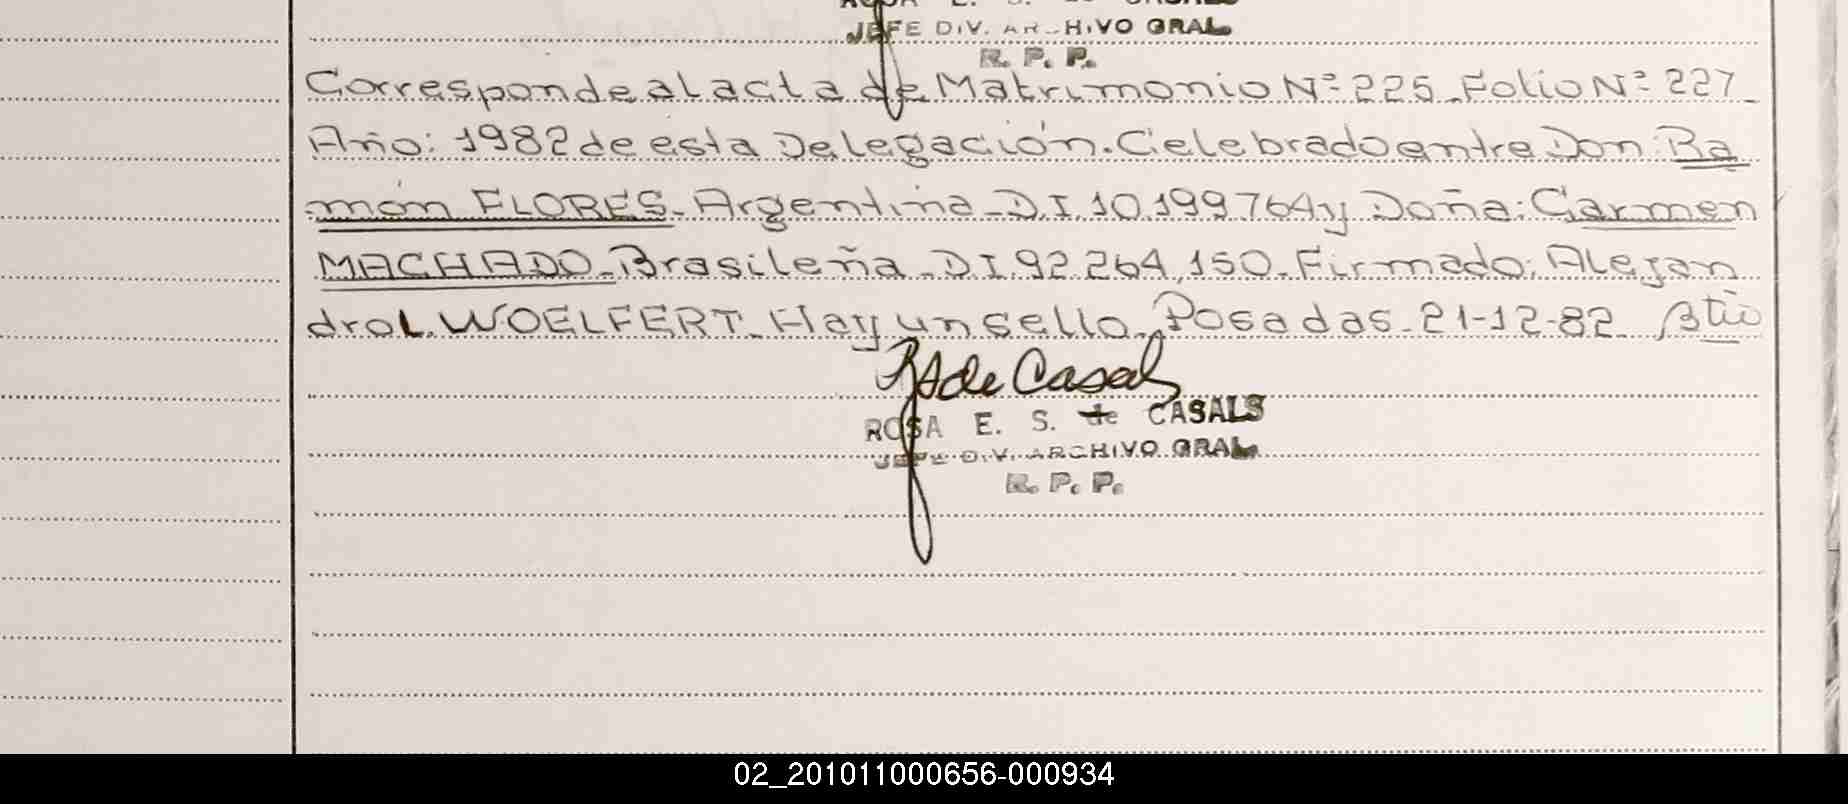 JEFE DIV. ARCHIVO GRAL.
R. P. P.
Corresponde al acta de Matrimonio Nº 225. Folio Nº 227_
Año: 1982 de esta Delegación. Celebrado entre Don: Ra
món FLORES. Argentina. D.I. 10.199.764 y Doña: Carmen
MACHADO. Brasileña. D.I. 92.264,150. Firmado: Alejan
dro L. WOELFERT. Hay un sello. Posadas. 21-12-82.
R S de Casals
ROSA E. S. de CASALS
JEFE DIV. ARCHIVO GRAL.
R. P. P.
02_201011000656-000934